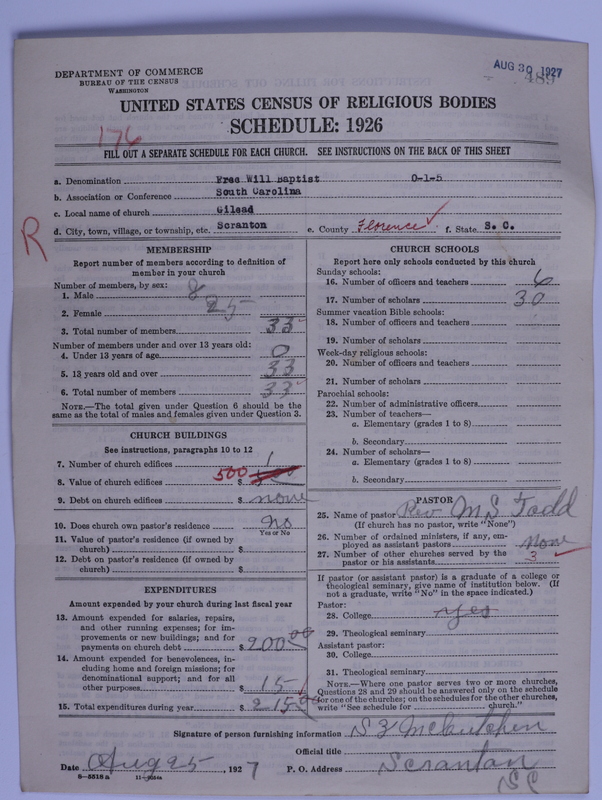 DEPARTMENT OF COMMERCE
BUREAU OF THE CENSUS
WASHINGTON
AUG 30 1927
489
UNITED STATES CENSUS OF RELIGIOUS BODIES
SCHEDULE: 1926
176
FILL OUT A SEPARATE SCHEDULE FOR EACH CHURCH. SEE INSTRUCTIONS ON THE BACK OF THIS SHEET
a. Denomination Free Will Baptist 0-1-5
b. Association or Conference South Carolina
c. Local name of church Gilead
d. City, town, village, or township, etc. Scranton e. County Florence f. State S. C.
R
MEMBERSHIP
Report number of members according to definition of
member in your church
Number of members, by sex:
1. Male 8
2. Female 25
3. Total number of members 33
Number of members under and over 13 years old:
4. Under 13 years of age 0
5. 13 years old and over 33
6. Total number of members 33
NOTE.—The total given under Question 6 should be the
same as the total of males and females given under Question 3.
CHURCH BUILDINGS
See instructions, paragraphs 10 to 12
7. Number of church edifices 1
8. Value of church edifices 500 $
9. Debt on church edifices $ none
10. Does church own pastor's residence no
Yes or No
11. Value of pastor's residence (if owned by
church) $
12. Debt on pastor's residence (if owned by
church) $
EXPENDITURES
Amount expended by your church during last fiscal year
13. Amount expended for salaries, repairs,
and other running expenses; for im-
provements or new buildings; and for
payments on church debt $ 200 00
14. Amount expended for benevolences, in-
cluding home and foreign missions; for
denominational support; and for all
other purposes $ 15
15. Total expenditures during year $ 215 00
CHURCH SCHOOLS
Report here only schools conducted by this church
Sunday schools:
16. Number of officers and teachers 6
17. Number of scholars 30
Summer vacation Bible schools:
18. Number of officers and teachers
19. Number of scholars
Week-day religious schools:
20. Number of officers and teachers
21. Number of scholars
Parochial schools:
22. Number of administrative officers
23. Number of teachers—
a. Elementary (grades 1 to 8)
b. Secondary
24. Number of scholars—
a. Elementary (grades 1 to 8)
b. Secondary
PASTOR
25. Name of pastor Rev M S Todd
(If church has no pastor, write "None")
26. Number of ordained ministers, if any, em-
ployed as assistant pastors none
27. Number of other churches served by the
pastor or his assistants 3
If pastor (or assistant pastor) is a graduate of a college or
theological seminary, give name of institution below. (If
not a graduate, write "No" in the space indicated.)
Pastor:
28. College yes
29. Theological seminary
Assistant pastor:
30. College
31. Theological seminary
NOTE.—Where one pastor serves two or more churches,
Questions 28 and 29 should be answered only on the schedule
for one of the churches; on the schedules for the other churches,
write "See schedule for church."
Signature of person furnishing information S Z McCutchen
Official title
Date Aug 25, 1927 P. O. Address Scranton
SC
8-5518 a